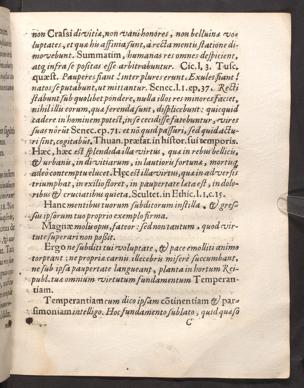 non Crassi divitiæ, non vani honores, non belluinæ vo-
luptates, et quæ his affinia sunt, à recta mentis statione di-
movebunt. Summatim, humanas res omnes despicient,
atq́ infra se positas esse arbitrabuntur. Cic. l. 3. Tusc.
quæst. Pauperes fiant! inter plures erunt. Exules fiant!
natos se putabunt, ut mittantur. Senec. l. 1. ep. 37. Recti
stabunt sub quolibet pondere, nulla illos res minores faciet,
nihil illis eorum, quæ ferenda sunt, displicebunt: quicquid
cadere in hominem potest, in se cecidisse
vires
suas nôrût Senec. ep. 71. et nō quid passuri, sed quid actu-
ri sint, cogitabût, Thuan. præfat. in histor. sui temporis.
Hæc, hæc est splendida illa virtus, quæ in rebus bellicis,
& urbanis, in divitiarum, in lautiori fortuna, mortuq́
adeò contemptu elucet. Hęc est illa virtus, quæ in adversis
triumphat, in exilio floret, in paupertate læta est, in dolo-
ribus & cruciatibus quieta. Scultet. in Ethic. l. 1. c. 15.
Hanc mentibus tuorum subditorum instilla, & gres-
sus ipsorum tuo proprio exemplo firma.
Magnæ molis opus, fateor: sed non tantum, quod vir-
tute superari non possit.
Ergo ne subditi tui voluptate, & pace emolliti animo
torpeant: ne propriæ carnis illecebris miserè succumbant,
ne sub ipsa paupertate langueant, planta in hortum Rei-
publ. tuæ omnium virtutum fundamentum Temperan-
tiam.
Temperantiam cum dico ipsam cōtinentiam & par-
simoniam intelligo. Hoc fundamento sublato, quid quæso
C